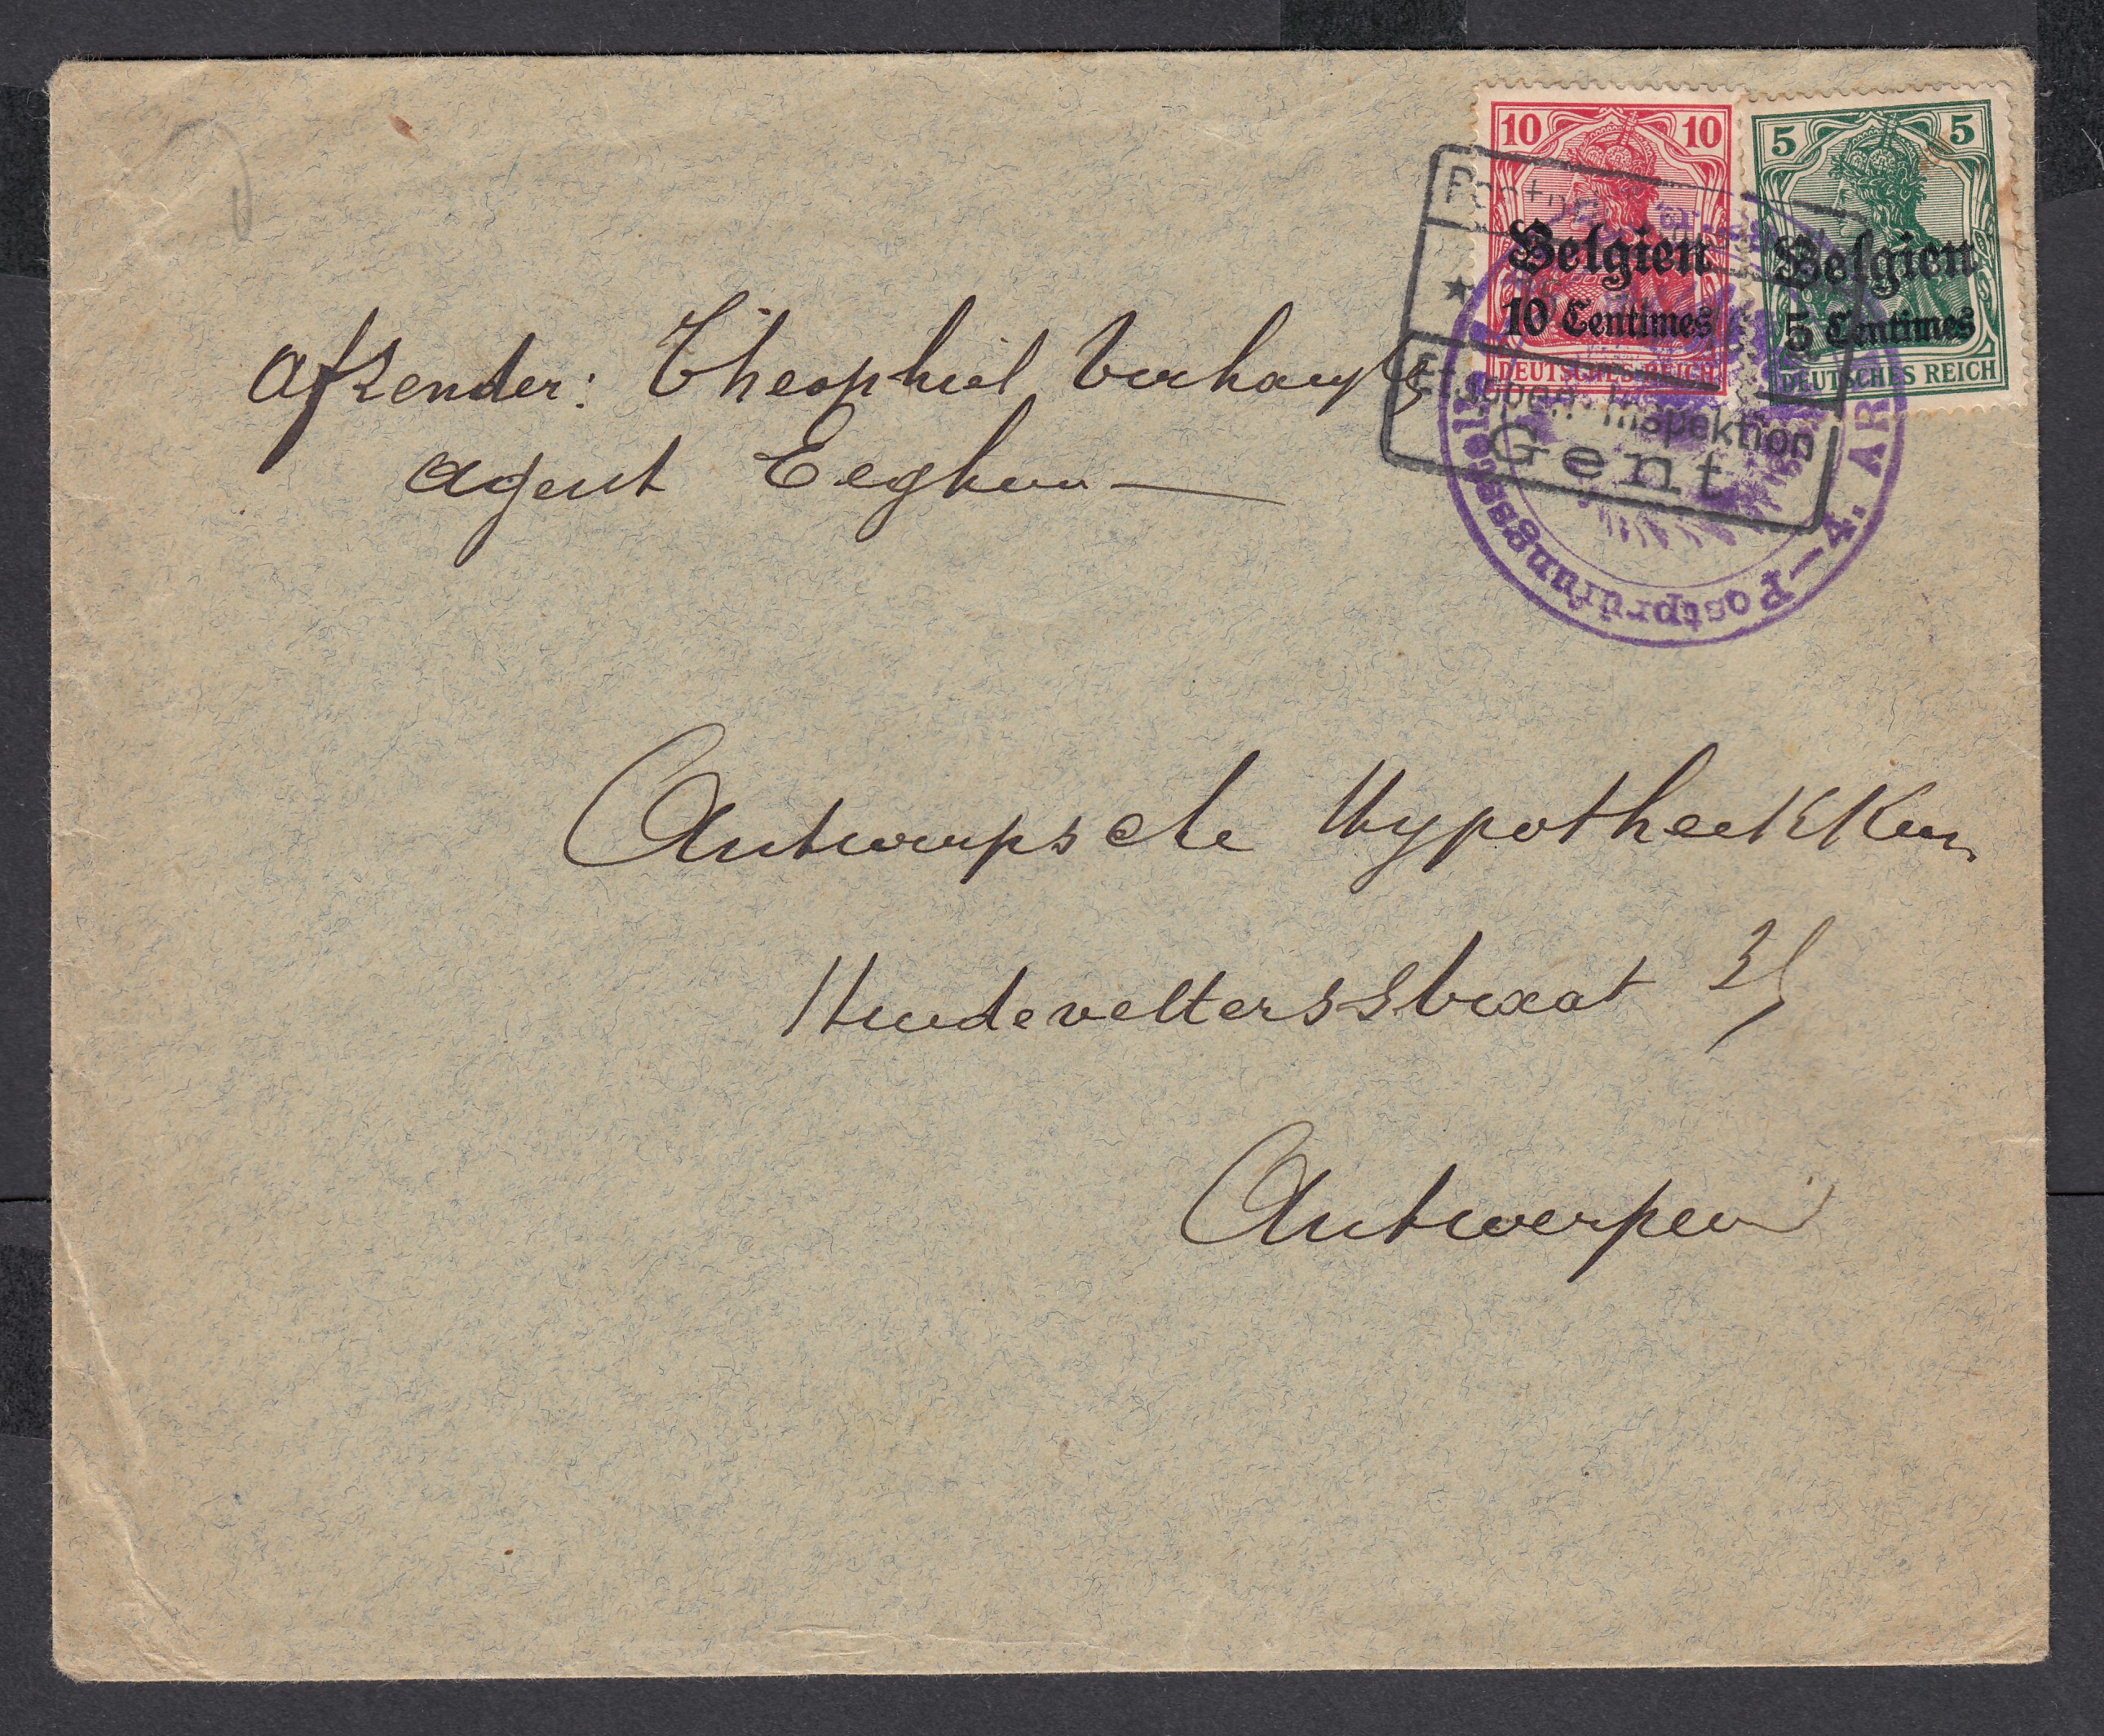 10 10
Belgien
10 Centimes
DEUTSCHES REICH
5 5
Belgien
5 Centimes
DEUTSCHES REICH
Etappen-Inspektion
Gent
Postprüfungsstelle
4. AR
Afzender: Théophiel
agent Eeghem
Antwerpsche Hypotheekkas
Huidevettersstraat
Antwerpen